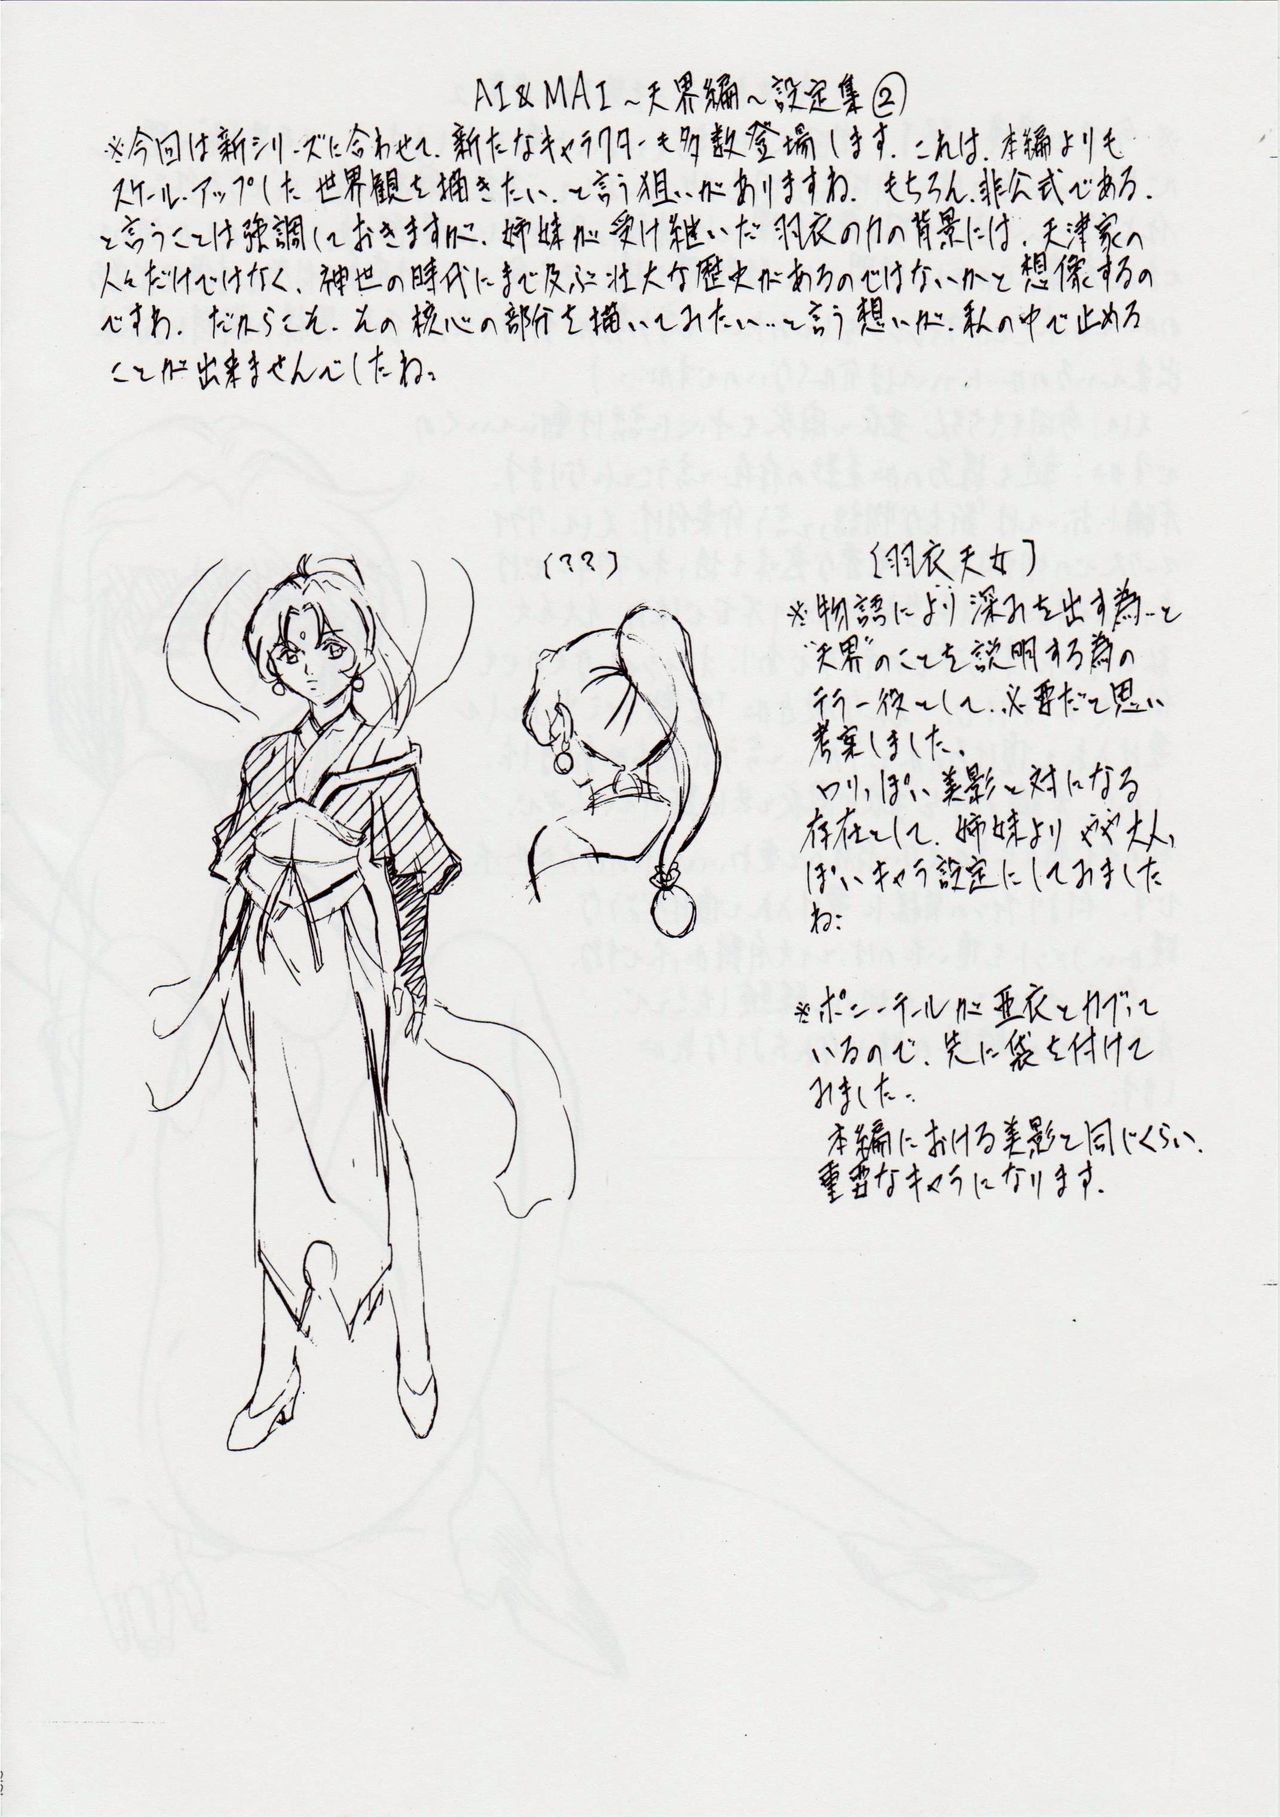 AI&MAI～天界編～設定集②
※今回は新シリーズに合わせて、新たなキャラクターも多数登場します。これは、本編よりも
スケール・アップした世界観を描きたい、と言う狙いがありますね。もちろん、非公式である、
と言うことは強調しておきますが、姉妹が受け継いだ羽衣の力の背景には、天津家の
人々だけではなく、神世の時代にまで及ぶ壮大な歴史があるのではないかと想像するの
ですわ。だからこそ、その核心の部分を描いてみたい…と言う想いが、私の中で止める
ことが出来ませんでしたね。
(??)
[羽衣天女]
※物語により深みを出す為…と
"天界"のことを説明する為の
テラー役として、必要だと思い
考案しました。
ロリっぽい美影と対になる
存在として、姉妹よりやや大人っ
ぽいキャラ設定にしてみました
ね。
※ポニーテールが亜衣とカブって
いるので、先に袋を付けて
みました…
本編における美影と同じくらい、
重要なキャラになります。
22